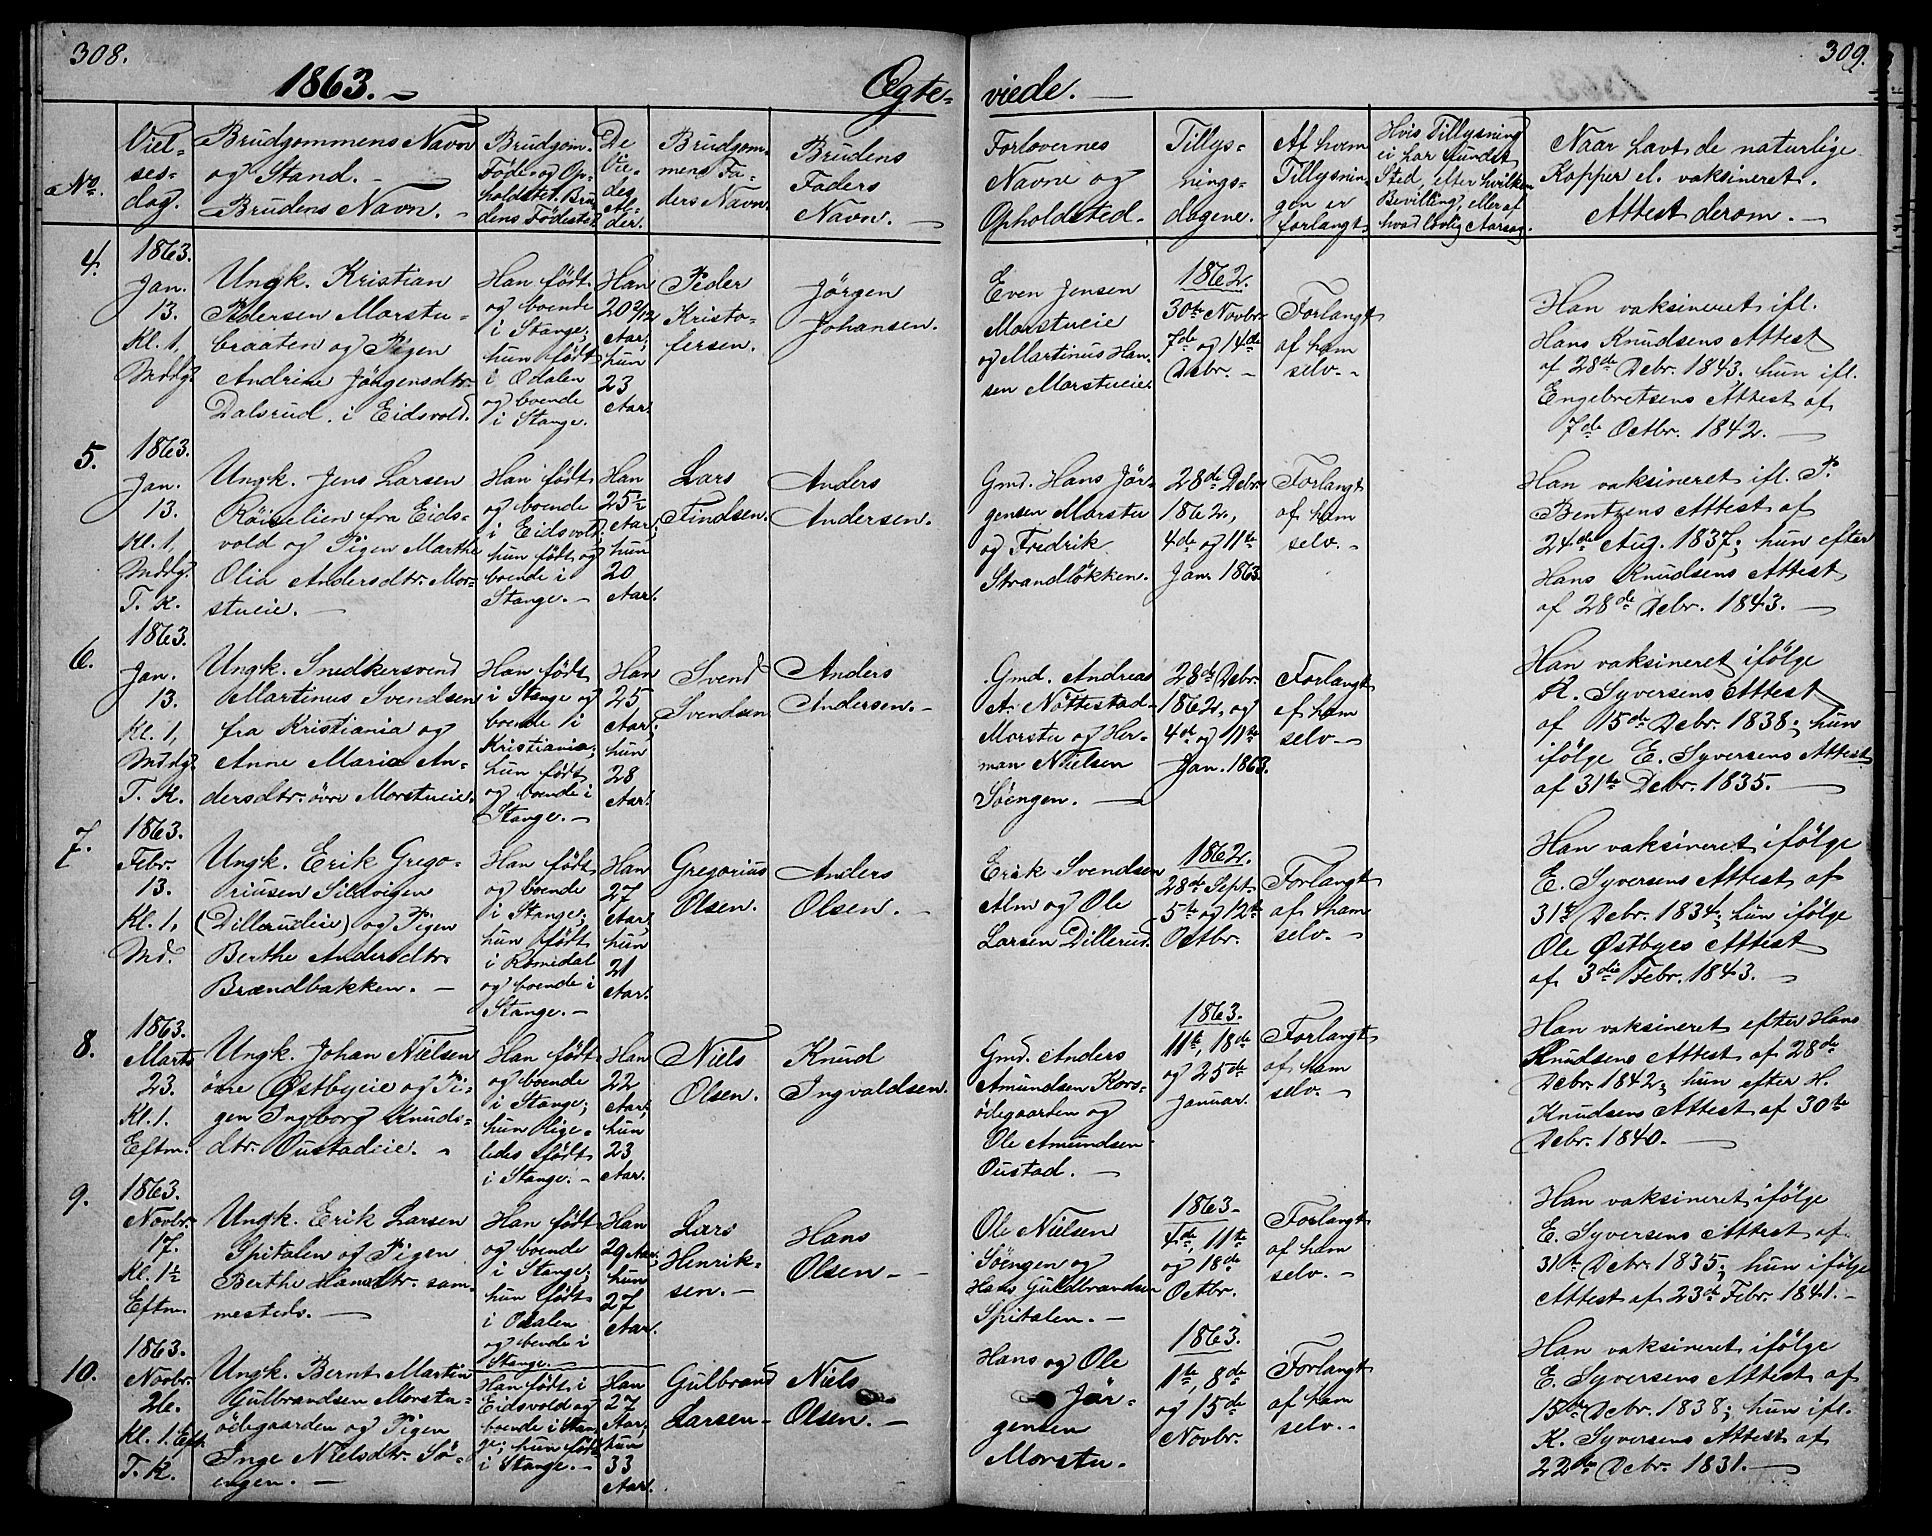 308.
309.
1863. –
Ægte-
viede. –
No.
Viel-
ses-
dag.
Brudgommens Navn
og Stand. –
Brudens Navn. –
Brudgom.
Føde- og Op-
holdsted. Bru-
dens Fødested.
De
Vie-
des
Al-
der.
Brudgom-
mens Fa-
ders Navn.
Brudens
Faders
Navn. –
Forlovernes
Navne og
Opholdsted.
Tillys-
nings-
dagene.
Af hvem
Tillysnin-
gen er
forlangt
Hvis Tillysning
ei har fundet
Sted, efter hvilken
Bevilling, eller af
hvad lovlig Aarsag.
Naar havt de naturlige
Kopper el. vaksineret.
Attest derom. –
4.
1863.
Jan.
13.
Kl. 1,
Mddg.
Ungk. Kristian
Pedersen Morstu-
braaten og Pigen
Andrine Jörgensdtr.
Dalsrud, i Eidsvold.
Han født
og boende
i Stange;
hun født
i Odalen
og boende
i Stange.
Han
20 2/12
Aar;
hun
23
Aar.
Peder
Kristo-
fersen.
Jörgen
Johansen.
Even Jensen
Morstueie
og Martinus Han-
sen Morstueie.
1862.
30te Novbr.
7de og 14de
Debr. –
Forlangt
af ham
selv. –
Han vaksineret ifl.
Hans Knudsens Attest
af 28de Debr. 1843. hun ifl.
Engebretsens Attest af
7de Octbr. 1842. –
5.
1863.
Jan.
13.
Kl. 1,
Mddg.
T. K.
Ungk. Jens Larsen
Röiselien fra Eids-
vold og Pigen Marthe
Olia Andersdtr. Mor-
stueie. –
Han født
og boende
i Eidsvold;
hun født og
boende i
Stange. –
Han
25½
Aar;
hun
20
Aar.
Lars
Findsen.
Anders
Andersen.
Gmd. Hans Jör-
gensen Morstu
og Fredrik
Strandlökken.
28de Debr.
1862,
4de og 11te
Jan. 1863.
Forlangt
af ham
selv. –
Han vaksineret ifl. P.
Bentzens Attest af
24de Aug. 1837; hun efter
Hans Knudsens Attest
af 28de Debr. 1843. –
6.
1863.
Jan.
13.
Kl. 1,
Mddg.
T. K.
Ungk. Snedkersvend
Martinus Svendsen
fra Kristiania og
Anne Maria An-
dersdtr. övre Morstueie.
Han født
i Stange og
boende i
Kristiania;
hun født
og boende i
Stange. –
Han
25
Aar;
hun
28
Aar.
Svend
Svendsen
Anders
Andersen. –
Gmd. Andreas
A. Nöttestad-
Morstu og Her-
man Nielsen
Söengen. –
28de Debr.
1862, og
4de og 11te
Jan. 1863.
Forlangt
af ham
selv. –
Han vaksineret ifölge
K. Syversens Attest
af 15de Debr. 1838; hun
ifölge E. Syversens Attest
af 31te Debr. 1835. –
7.
1863.
Febr.
13.
Kl. 1,
Md.
Ungk. Erik Grego-
riusen Sildvigen
(Dillerudeie) og Pigen
Berthe Andersdtr.
Brændbakken. –
Han født
og boende
i Stange;
hun født
i Romedal
og boende i
Stange. –
Han
27
Aar
hun
21
Aar.
Gregorius
Olsen.
Anders
Olsen. –
Erik Svendsen
Alm og Ole
Larsen Dillerud.
1862.
28de Sept.
5te og 12te
Octbr.
Forlangt
af ham
selv. –
Han vaksineret ifölge
E. Syversens Attest af
31te Debr. 1834; hun ifölge
Ole Østbyes Attest
af 3die Febr. 1843. –
8.
1863.
Marts
23.
Kl. 1.
Eftm.
Ungk. Johan Nielsen
övre Østbyeie og Pi-
gen Ingeborg Knuds-
dtr. Oustadeie. –
Han født
og boende
i Stange;
hun lige-
ledes født
i Stange. –
Han
22
Aar;
hun
23
Aar.
Niels
Olsen.
Knud
Ingvaldsen.
Gmd. Anders
Amundsen Kors-
ödegaarten og
Ole Amundsen
Oustad. –
1863.
11te, 18de
og 25de
Januar.
Forlangt
af ham
selv. –
Han vaksineret efter Hans
Knudsens Attest af 28de
Debr. 1842; hun efter H.
Knudsens Attest af 30te
Debr. 1840. –
9.
1863.
Novbr.
17.
Kl. 1½
Eftm.
Ungk. Erik Larsen
Spitalen og Pigen
Berthe Hansdtr. sam-
mesteds. –
Han født
og boende
i Stange;
hun født
i Odalen
og boende i
Stange. –
Han
29 Aar,
hun
27
Aar.
Lars
Henrik-
sen. –
Hans
Olsen –
Ole Nielsen
Söengen og
Hans Guldbrandsen
Spitalen. –
1863. –
4de, 11te
og 18de
Octbr.
Forlangt
af ham
selv. –
Han vaksineret ifölge
E. Syversens Attest af
31te Debr. 1835; hun ifölge
Attest af 23de Febr. 1841. –
10.
1863.
Novbr.
26.
Kl. 1. Eft.
T. K.
Ungk. Bernt Martin
Gulbrandsen Morstu-
ödegaarden og Pigen
Inge Nielsdtr. Sö-
engen. –
Han født i
Eidsvold og
boende i Stan-
ge; hun født
i Stange. –
Han
27
Aar;
hun
33
Aar.
Gulbrand
Larsen –
Niels
Olsen. –
Hans og Ole
Jör-
gensen
Morstu.
1863.
1te, 8de
og 15de
Novbr.
Forlangt
af ham
selv. –
Han vaksineret ifölge
E. Syversens Attest af
15de Debr. 1838; hun ifl.
K. Syversens Attest af
22de Debr. 1831. –